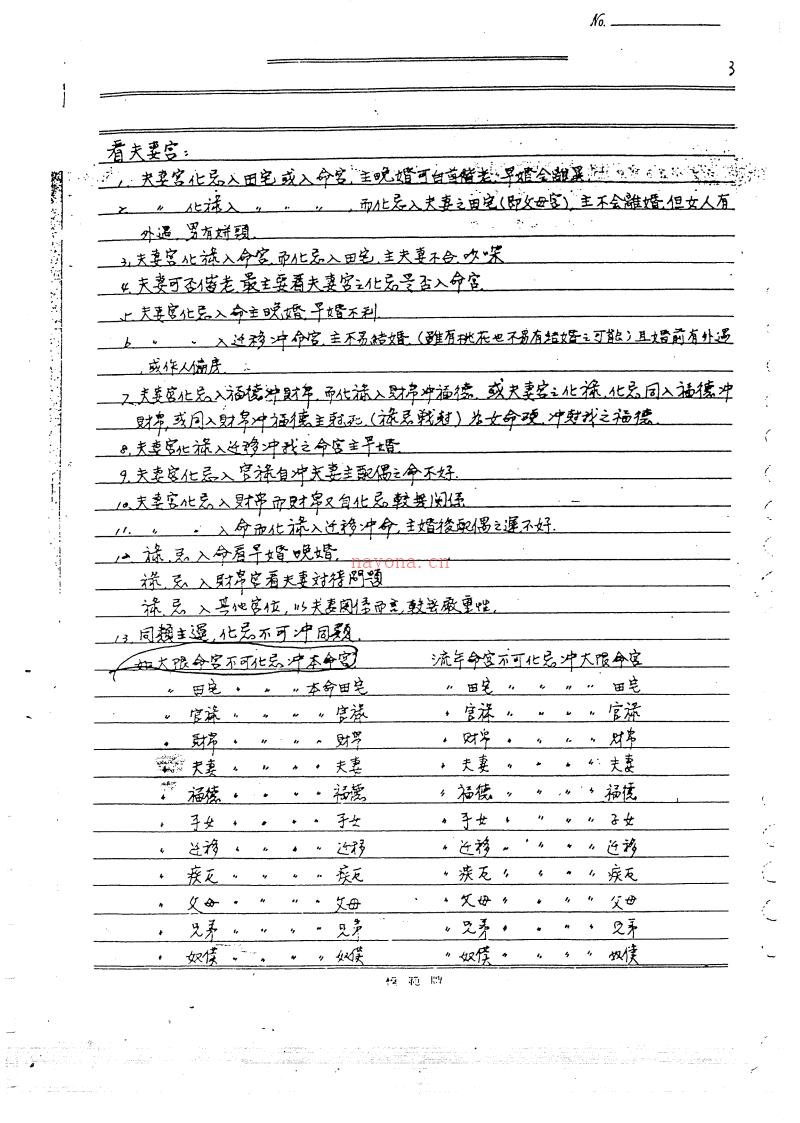 No.
3
看夫妻宮：
1. 夫妻宮化忌入田宅或入命宮,主晚婚可白首偕老,早婚会離異.
2 〃 化祿入 〃 〃 〃 ,而化忌入夫妻之田宅(即父母宮),主不会離婚.但女人有
外遇,男有姘頭.
3, 夫妻宮化祿入命宮,而化忌入田宅,主夫妻不会吵
4. 夫妻可否偕老,最主要看夫妻宮之化忌是否入命宮.
5. 夫妻宮化忌入命主晚婚,早婚不利.
6 〃 〃 入迁移冲命宮,主不易結婚.(雖有桃花也不易有結婚之可能)且婚前有外遇
,或作人偏房.
7. 夫妻宮化忌入福德冲財帛,而化祿入財帛冲福德.或夫妻宮之化祿,化忌同入福德冲
財帛,或同入財帛冲福德主尅死.(祿忌戰尅)為女命硬,冲尅我之福德.
8. 夫妻宮化祿入迁移冲我之命宮主早婚.
9. 夫妻宮化忌入官祿自冲夫妻主配偶之命不好.
10. 夫妻宮化忌入財帛而財帛又自化忌,較無関係
11. 〃 〃 入命而化祿入迁移冲命,主婚後配偶之運不好.
12. 祿,忌入命看早婚,晚婚.
祿,忌入財帛宮看夫妻対待問題
祿,忌入其他宮位,以夫妻関係而言,較無嚴重性.
13. 同類主運,化忌不可冲同類.
如大限命宮不可化忌冲本命宮 流年命宮不可化忌冲大限命宮
〃 田宅 〃 〃 〃 本命田宅 〃 田宅 〃 〃 〃 〃 田宅
〃 官祿 〃 〃 〃 〃 官祿 〃 官祿 〃 〃 〃 〃 官祿
〃 財帛 〃 〃 〃 〃 財帛 〃 財帛 〃 〃 〃 〃 財帛
夫妻 〃 〃 〃 〃 夫妻 〃 夫妻 〃 〃 〃 〃 夫妻
〃 福德 〃 〃 〃 〃 福德 〃 福德 〃 〃 〃 〃 福德
〃 子女 〃 〃 〃 〃 子女 〃 子女 〃 〃 〃 〃 子女
〃 迁移 〃 〃 〃 〃 迁移 〃 迁移 〃 〃 〃 〃 迁移
〃 疾厄 〃 〃 〃 〃 疾厄 〃 疾厄 〃 〃 〃 〃 疾厄
〃 父母 〃 〃 〃 〃 父母 〃 父母 〃 〃 〃 〃 父母
〃 兄弟 〃 〃 〃 〃 兄弟 〃 兄弟 〃 〃 〃 〃 兄弟
〃 奴僕 〃 〃 〃 〃 奴僕 〃 奴僕 〃 〃 〃 〃 奴僕
模範牌
nayona.cn